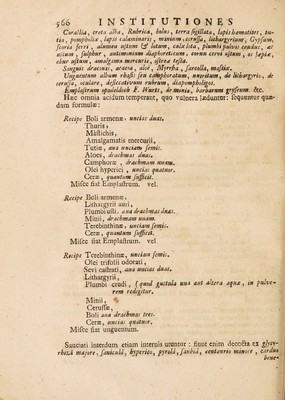 566 INSTITUTIONES
Corallia, creta alba, Rubrica, bolus, terra sigillata, lapis hæmatites, tu-
tia, pompholix, lapis calaminaris, minium cerussa, lithargyrium, Gypsum,
scoria ferri, alumen ustum & lotum, calx lota, plumbi pulvis cendus, ac
ustum, sulphur, antimonium diaphoreticum, cornu cervi ustum, os sæpiæ,
ebur ustum, amalgama mercurii, ostrea testa.
Sanguis draconis, acacia, aloë, Myrrha, sarcolla, mastix.
Unguentum album rhasis sine camphoratum, nutritum, de lithargyrio, de
cerussa, oculare, desiccativum rubrum, diapompholigos.
Emplastrum opodeldoch F. Wurts, de minio, barbarum gryseum &c.
Hæc omnia acidum temperant, quo vulnera læduntur: sequuntur quæ-
dam formulæ:
Recipe Boli armenæ, uncias duas,
Thuris,
Mastichis,
Amalgamatis mercurii,
Tutiæ, ana unciam semis.
Aloes, drachmas duas,
Camphoræ, drachmam unam.
Olei hyperici, uncias quatuor.
Ceræ, quantum sufficit.
Misce fiat Emplastrum. vel
Recipe Boli armenæ,
Lithargyrii auri,
Plumbi usti. ana drachmas duas.
Minii, drachmam unam.
Terebinthinæ, unciam semis.
Ceræ, quantum sufficit.
Misce fiat Emplastrum. vel
Recipe Terebinthinæ, unciam semis.
Olei trifolii odorati,
Sevi castrati, ana uncias duas.
Lithargyrii,
Plumbi crudi, (quod gustula una aut altera aquæ, in pulve-
rem redigitur.
Minii,
Cerussæ,
Boli ana drachmas tres.
Ceræ, uncias quatuor.
Misce fiat unguentum.
Sauciati interdum etiam internis utuntur: fiunt enim decocta ex glycyr-
rhiza majore, saniculâ, hyperico, pyrolâ, scabiâ, centaurio minore, carduo
bene-